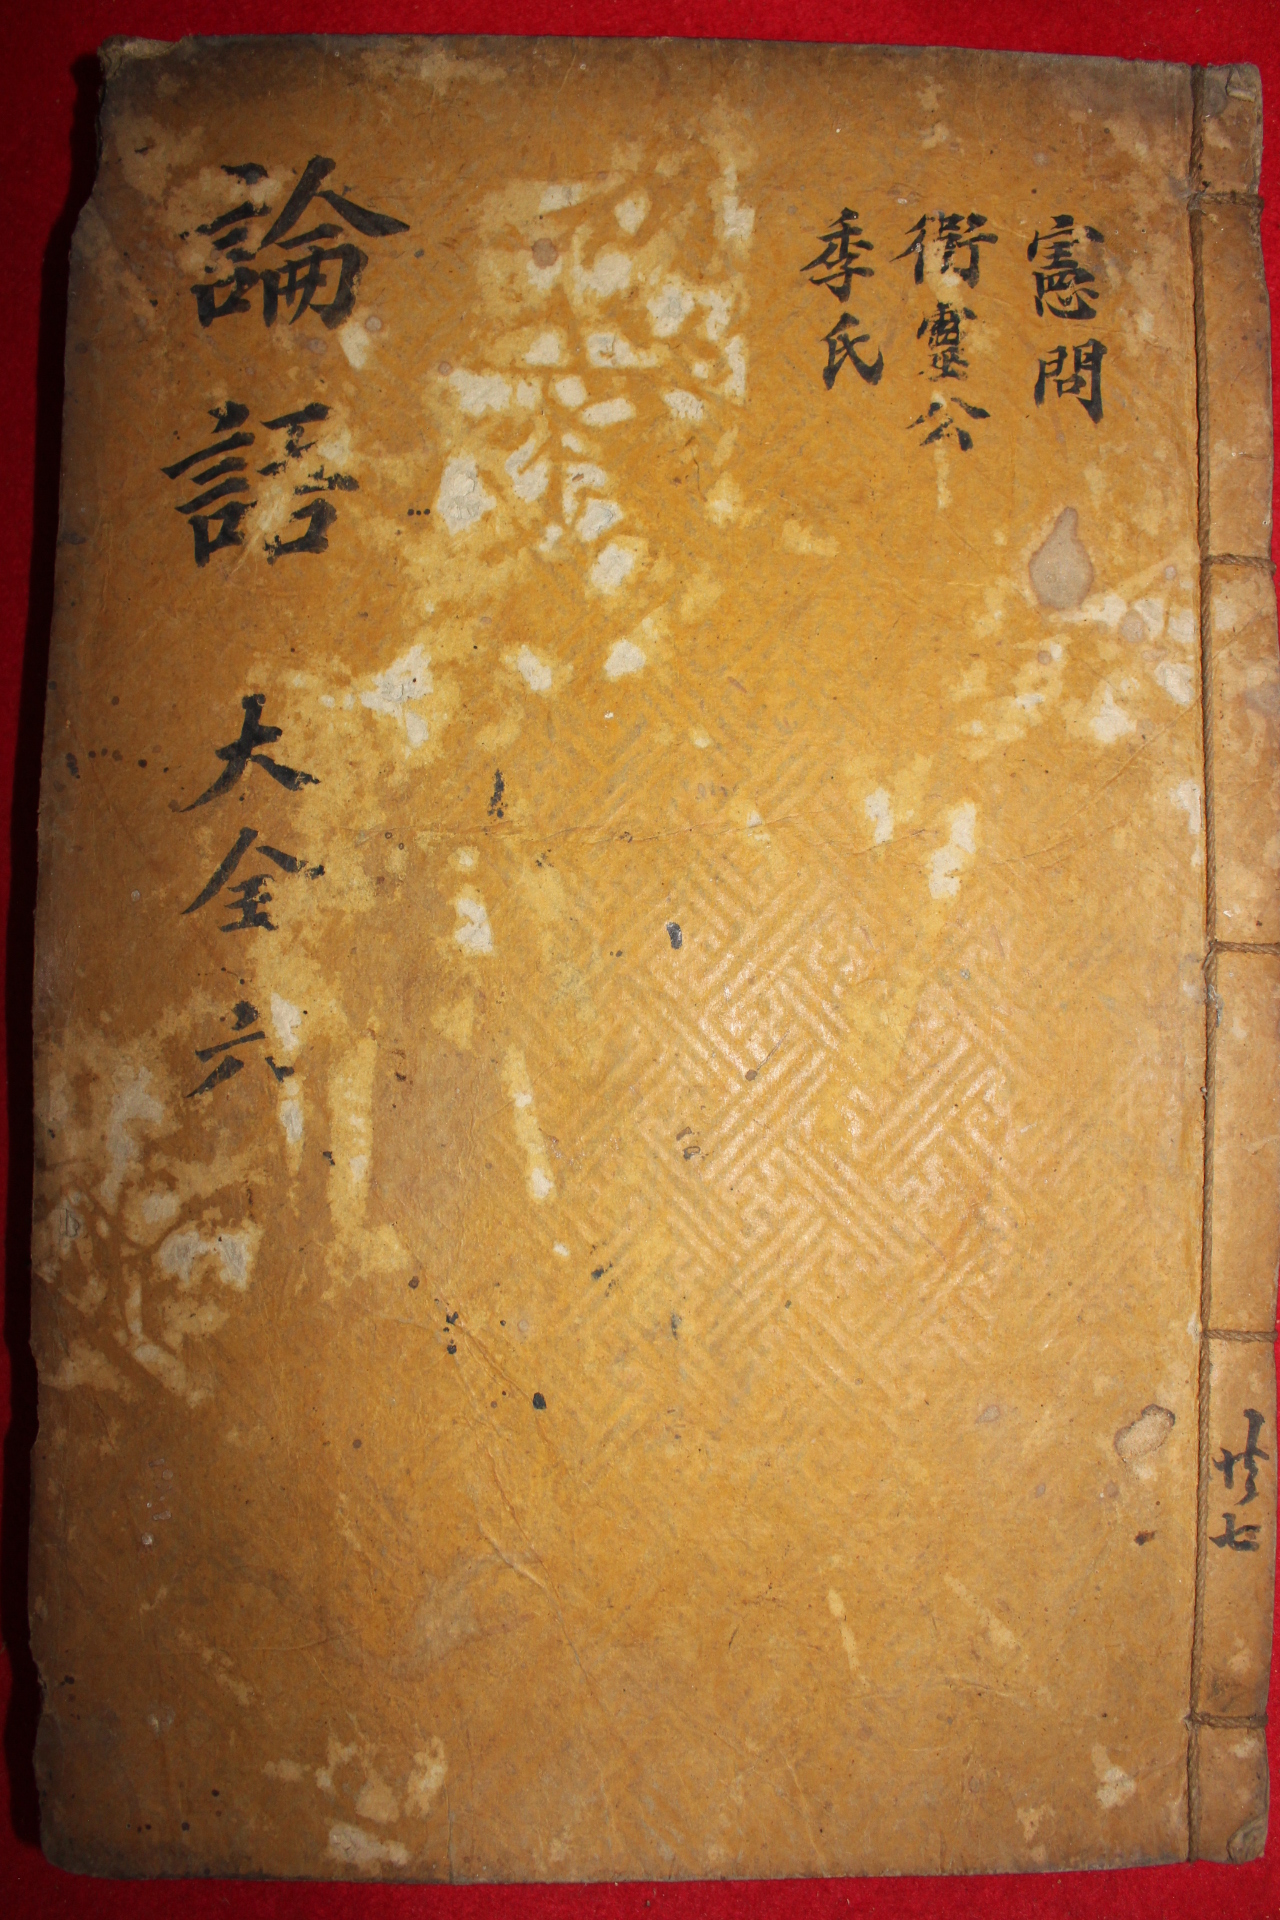 憲問
衛靈公
季氏
論語 大全 六
共七